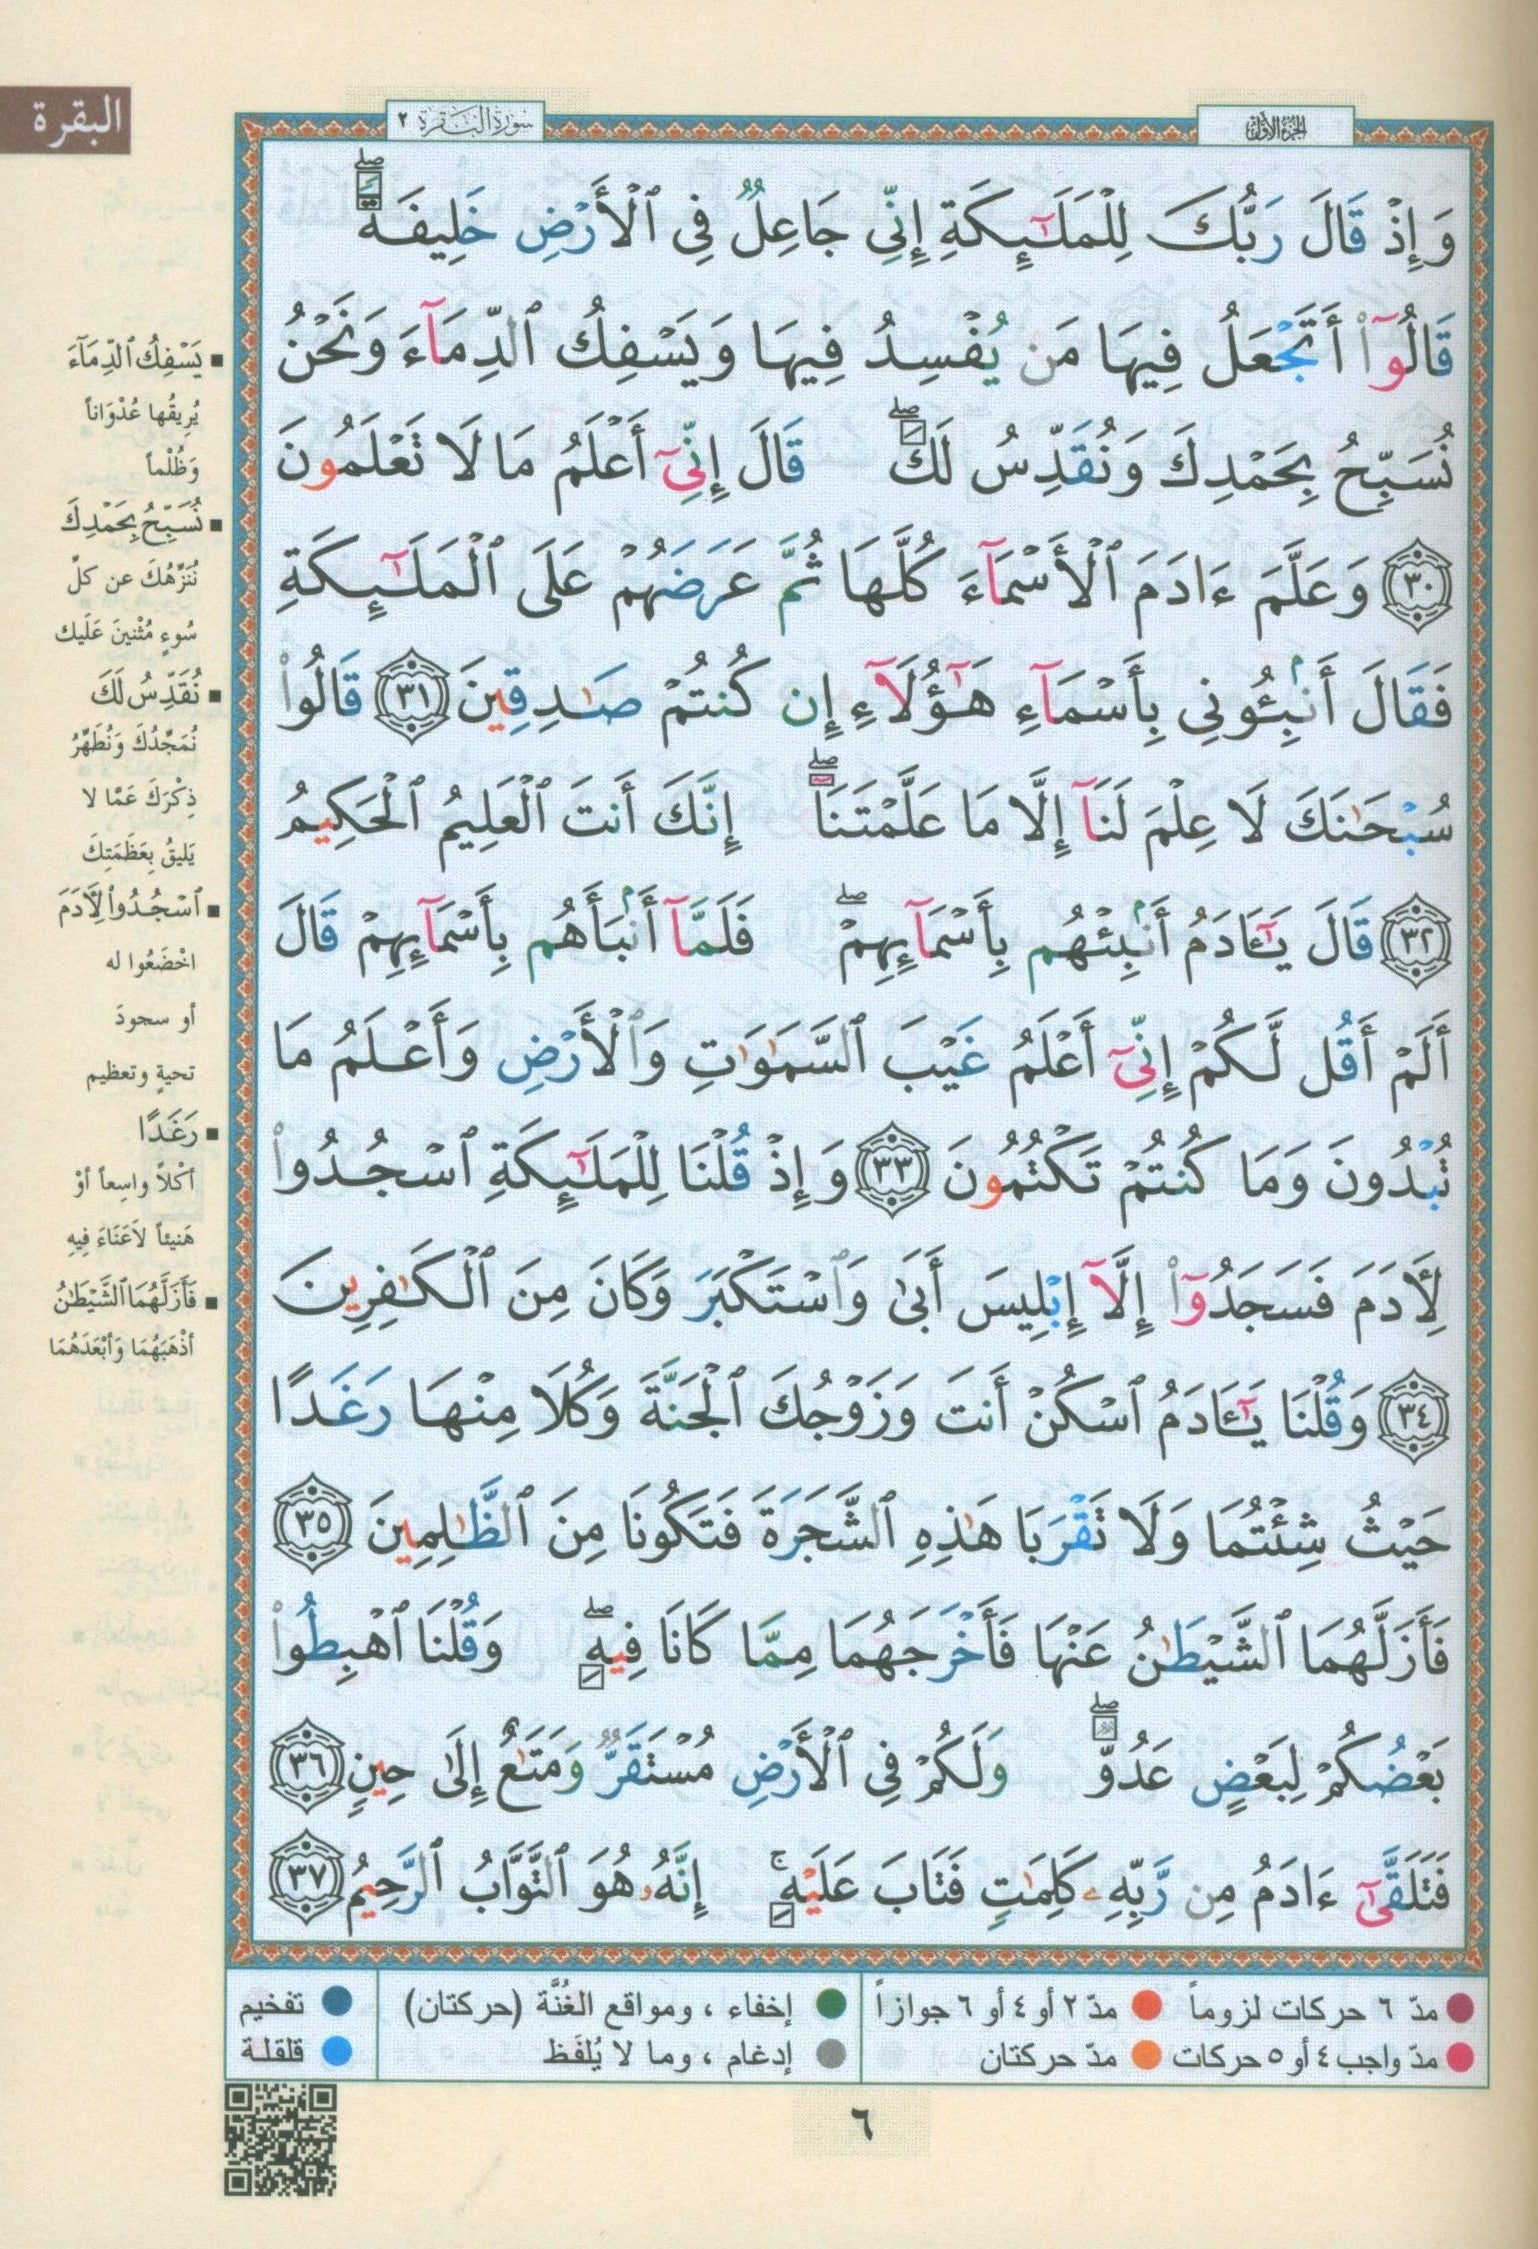 البقرة
الجزء الأول
سورة البقرة ٢
وَإِذْ قَالَ رَبُّكَ لِلْمَلَـٰٓئِكَةِ إِنِّى جَاعِلٌ فِى ٱلْأَرْضِ خَلِيفَةً ۖ
قَالُوٓا۟ أَتَجْعَلُ فِيهَا مَن يُفْسِدُ فِيهَا وَيَسْفِكُ ٱلدِّمَآءَ وَنَحْنُ
نُسَبِّحُ بِحَمْدِكَ وَنُقَدِّسُ لَكَ ۖ قَالَ إِنِّىٓ أَعْلَمُ مَا لَا تَعْلَمُونَ
٣٠ وَعَلَّمَ ءَادَمَ ٱلْأَسْمَآءَ كُلَّهَا ثُمَّ عَرَضَهُمْ عَلَى ٱلْمَلَـٰٓئِكَةِ
فَقَالَ أَنۢبِـُٔونِى بِأَسْمَآءِ هَـٰٓؤُلَآءِ إِن كُنتُمْ صَـٰدِقِينَ ٣١ قَالُوا۟
سُبْحَـٰنَكَ لَا عِلْمَ لَنَآ إِلَّا مَا عَلَّمْتَنَآ ۖ إِنَّكَ أَنتَ ٱلْعَلِيمُ ٱلْحَكِيمُ
٣٢ قَالَ يَـٰٓـَٔادَمُ أَنۢبِئْهُم بِأَسْمَآئِهِمْ ۖ فَلَمَّآ أَنۢبَأَهُم بِأَسْمَآئِهِمْ قَالَ
أَلَمْ أَقُل لَّكُمْ إِنِّىٓ أَعْلَمُ غَيْبَ ٱلسَّمَـٰوَٰتِ وَٱلْأَرْضِ وَأَعْلَمُ مَا
تُبْدُونَ وَمَا كُنتُمْ تَكْتُمُونَ ٣٣ وَإِذْ قُلْنَا لِلْمَلَـٰٓئِكَةِ ٱسْجُدُوا۟
لِـَٔادَمَ فَسَجَدُوٓا۟ إِلَّآ إِبْلِيسَ أَبَىٰ وَٱسْتَكْبَرَ وَكَانَ مِنَ ٱلْكَـٰفِرِينَ
٣٤ وَقُلْنَا يَـٰٓـَٔادَمُ ٱسْكُنْ أَنتَ وَزَوْجُكَ ٱلْجَنَّةَ وَكُلَا مِنْهَا رَغَدًا
حَيْثُ شِئْتُمَا وَلَا تَقْرَبَا هَـٰذِهِ ٱلشَّجَرَةَ فَتَكُونَا مِنَ ٱلظَّـٰلِمِينَ ٣٥
فَأَزَلَّهُمَا ٱلشَّيْطَـٰنُ عَنْهَا فَأَخْرَجَهُمَا مِمَّا كَانَا فِيهِ ۖ وَقُلْنَا ٱهْبِطُوا۟
بَعْضُكُمْ لِبَعْضٍ عَدُوٌّ ۖ وَلَكُمْ فِى ٱلْأَرْضِ مُسْتَقَرٌّ وَمَتَـٰعٌ إِلَىٰ حِينٍ ٣٦
فَتَلَقَّىٰٓ ءَادَمُ مِن رَّبِّهِۦ كَلِمَـٰتٍ فَتَابَ عَلَيْهِ ۚ إِنَّهُۥ هُوَ ٱلتَّوَّابُ ٱلرَّحِيمُ ٣٧
يَسْفِكُ ٱلدِّمَآءَ
يُرِيقُها عُدْوَاناً
وَظُلْماً
نُسَبِّحُ بِحَمْدِكَ
نُنَزِّهُكَ عن كلِّ
سُوءٍ مُثْنينَ عَلَيك
نُقَدِّسُ لَكَ
نُمَجِّدُكَ وَنُطَهِّرُ
ذِكْرَكَ عَمَّا لا
يَليقُ بِعَظَمَتِكَ
ٱسْجُدُوا۟ لِـَٔادَمَ
اخْضَعُوا له
أو سجودَ
تحيةٍ وتعظيم
رَغَدًا
أكْلاً واسِعاً أوْ
هَنيئاً لاَعَنَاءَ فِيهِ
فَأَزَلَّهُمَا ٱلشَّيْطَـٰنُ
أذْهَبَهُمَا وَأَبْعَدَهُمَا
مدّ ٦ حركات لزوماً
مدّ ٢ أو ٤ أو ٦ جوازاً
إخفاء ، ومواقع الغُنَّة (حركتان)
تفخيم
مدّ واجب ٤ أو ٥ حركات
مدّ حركتان
إدغام ، وما لا يُلفَظ
قلقلة
٦